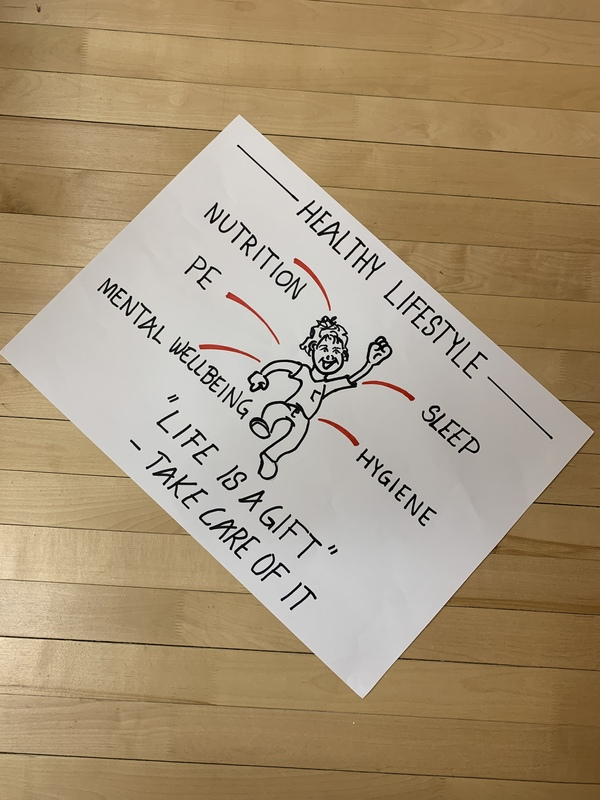 HEALTHY LIFESTYLE
NUTRITION
PE
MENTAL WELLBEING
SLEEP
HYGIENE
"LIFE IS A GIFT"
- TAKE CARE OF IT